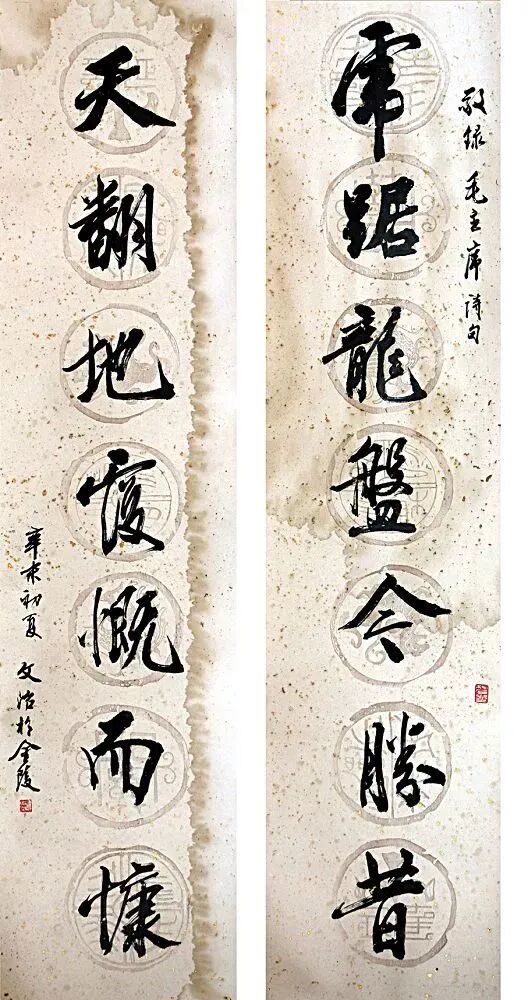 敬録 毛主席詩句
虎踞龍盤今勝昔
天翻地覆慨而慷
辛未初夏 文治於金陵